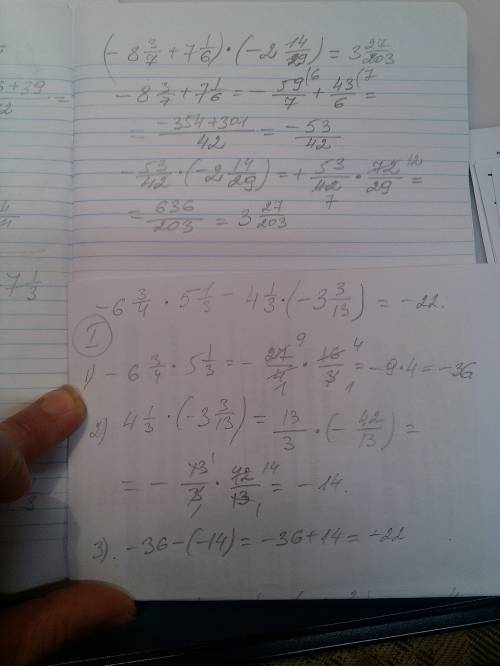 (- 8 3/7 + 7 1/6) · (-2 14/29) = 3 27/203
- 8 3/7 + 7 1/6 = - 59/7 (6 + 43/6 (7 =
= -354+301/42 = -53/42
- 53/42 · (-2 14/29) = + 53/42 7 · 72/29 12 =
= 636/203 = 3 27/203
7 1/3
-6 3/4 · 5 1/3 - 4 1/3 · (-3 3/13) = -22.
I
1) - 6 3/4 · 5 1/3 = - 27/4 9 1 · 16/3 4 1 = -9·4 = -36
2) 4 1/3 · (-3 3/13) = 13/3 · (- 42/13) =
= - 13/3 1 1 · 42/13 14 1 = -14.
3). -36-(-14) = -36+14 = -22